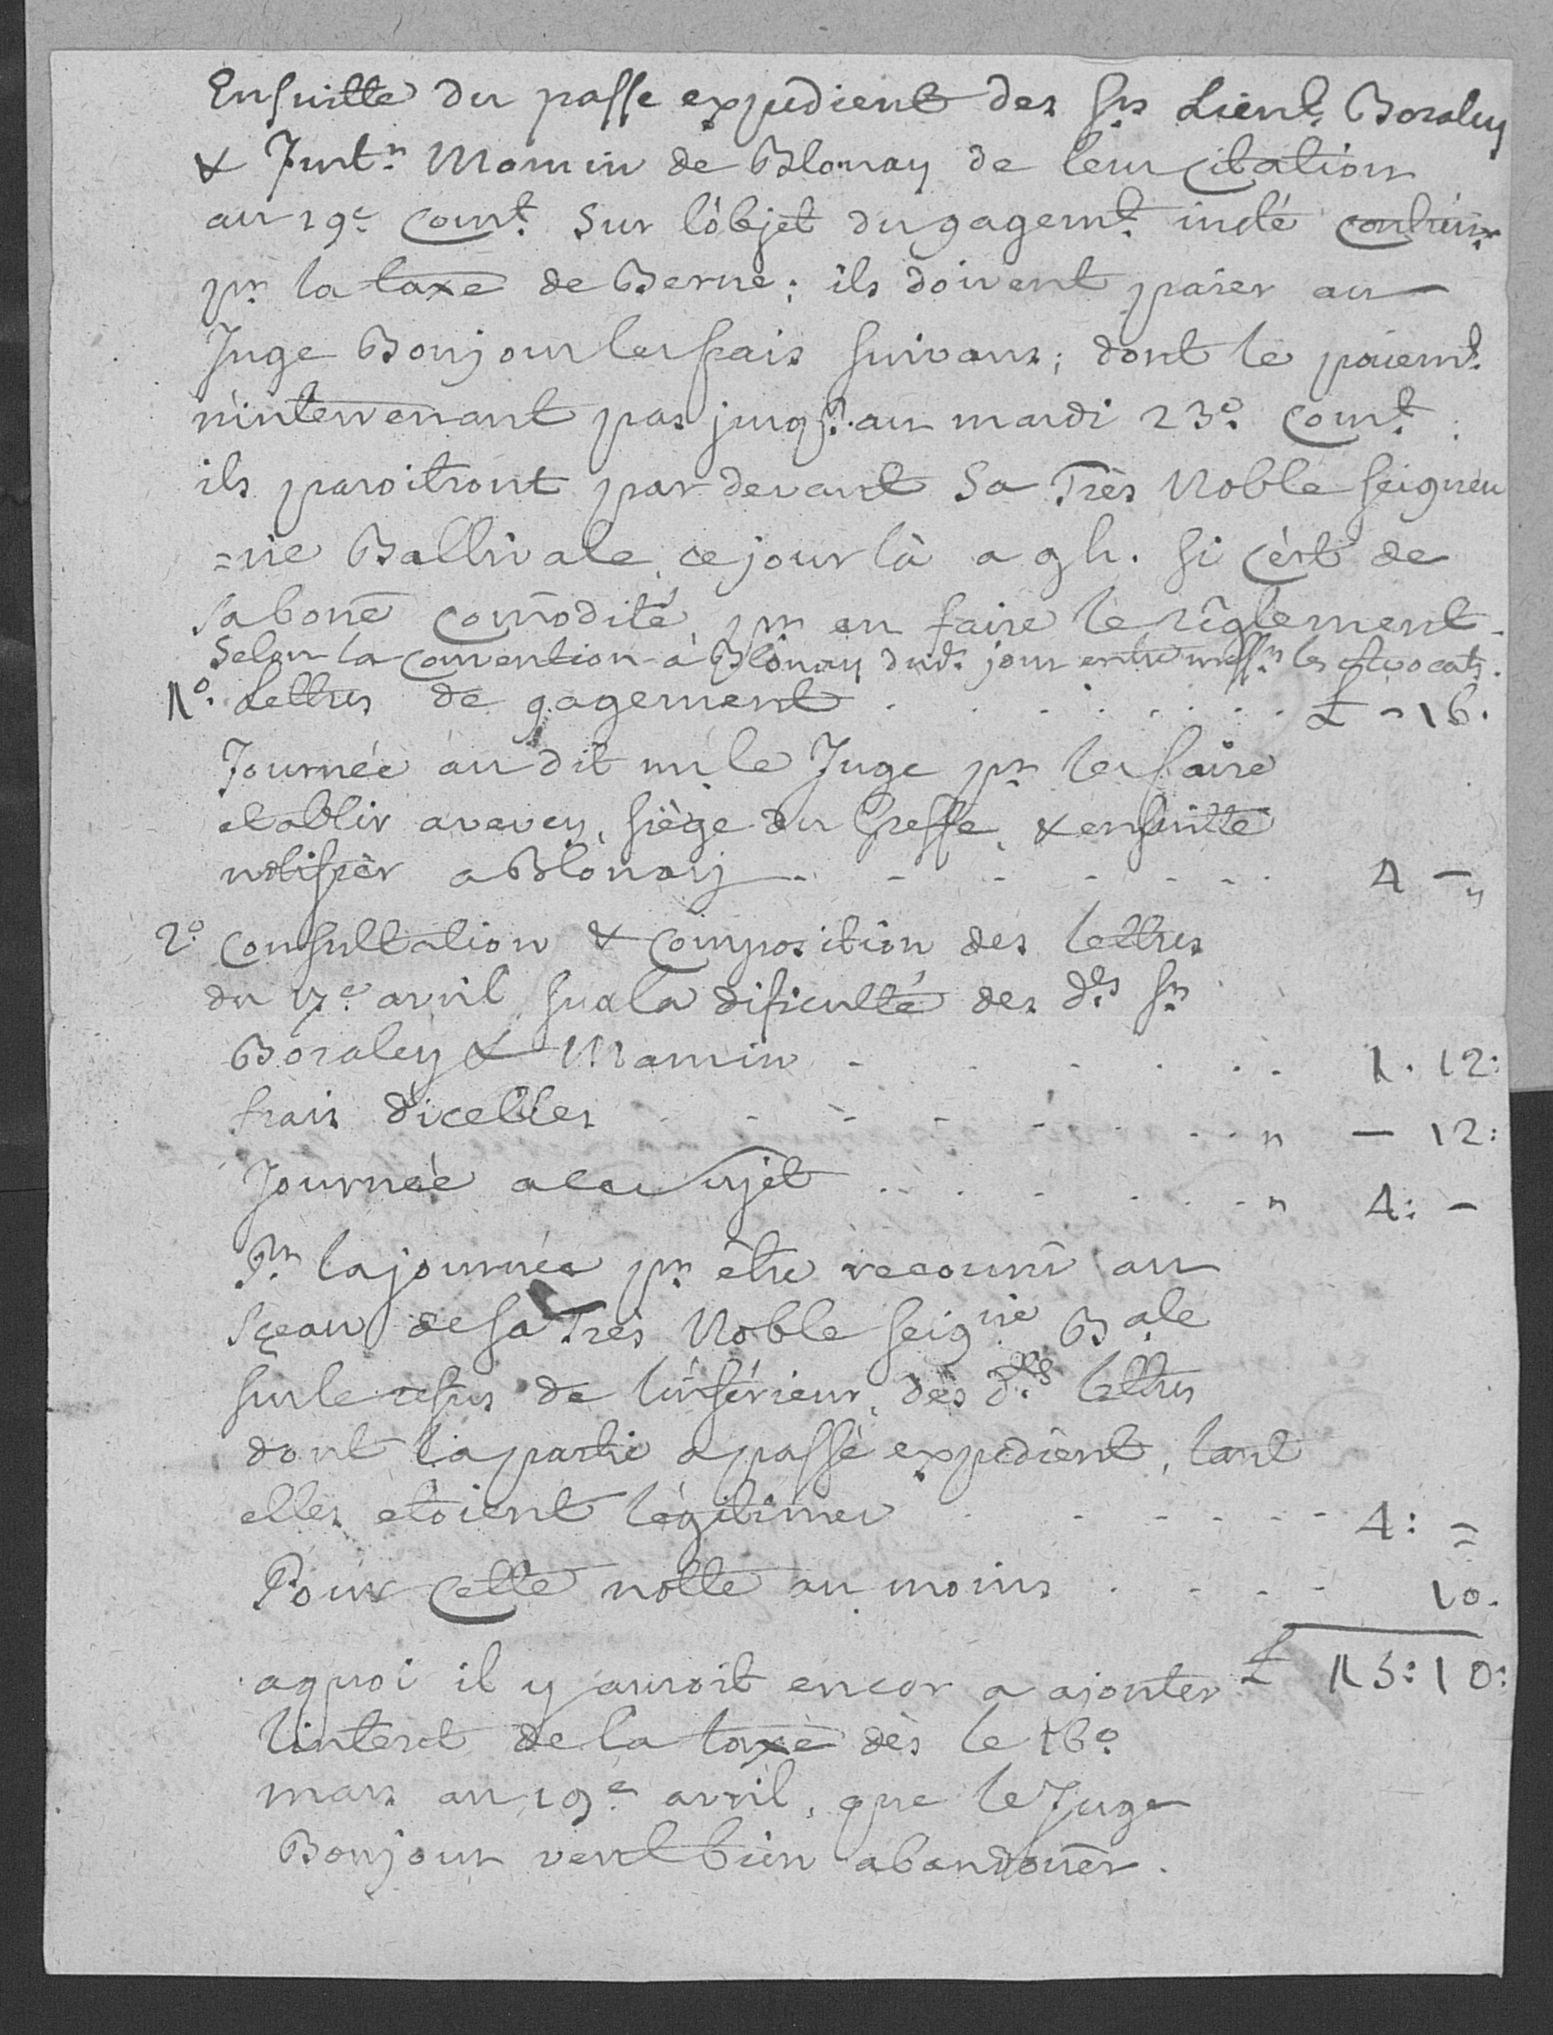 Ensuitte du passe expedient des Srs Lieut. Boraley
& Justn. Mamin de Blonay de leur citation
au 19e. court. Sur l'objet du gagemt.
pr la taxe de Berne; ils doivent paier au
Juge Bonjour les frais suivans; dont le paiemt.
n'intervenant pas jusqs. au mardi 23e. court.
ils paroitront par devant Sa Très Noble Seigneu
=rie Ballivale, ce jour là a 9 h. si c'est de
sa bone comodité, pr en faire le rêglement.
Selon la convention à Blonay dudt. jour entre messrs les Avocats.
1o. Lettres de gagement . . . . . . . £ - 16.
Journée au dit mr. le Juge pr les faire
etablir a vevey, siège du Greffe, & ensuitte
notifier a Blonay - - - - - - . 4 - "
2o. Consultation & composition des lettres
du 17e avril sur la dificulté des dts Srs
Boraley & Mamin - . - . . . 1. 12:
frais d'icelles - - - - - . . . " - 12:
Journée a ce sujet . . . - . . - " 4: -
Pr la journée pr être recouru au
sçeau de sa Très Noble Seigrie Bale
sur le refus de l'inférieur, des dtes lettres
dont la partie a passé expedient, tant
elles etoient légitimes . - - - - - 4: =
Pour cette notte au moins . - - - 10.
£ 15: 10:
a quoi il y auroit encor a ajouter
l'interet de la taxe dès le 16e
mars au 19e avril, que le Juge
Bonjour veut bien abandoner.